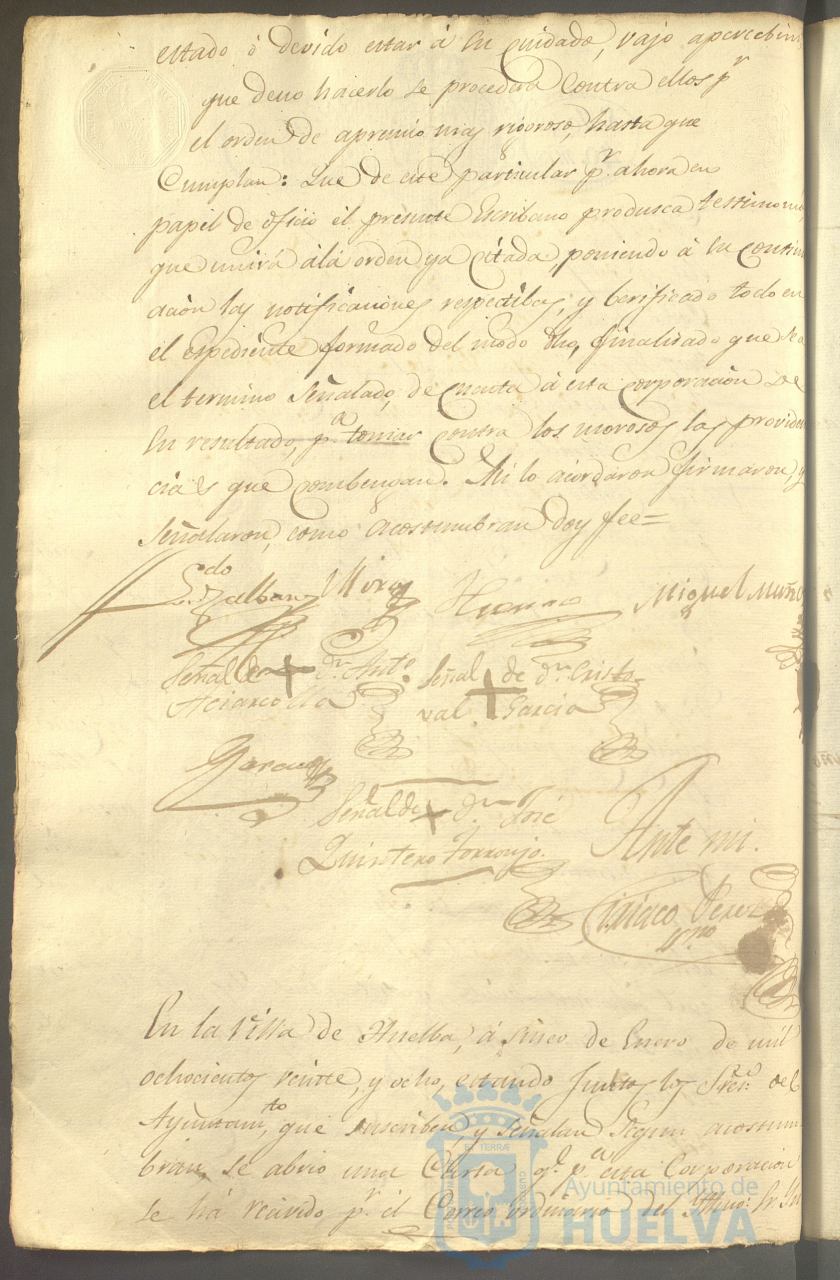 estado ó devido estar á su cuidado, vajo apercebim
que de no hacerlo se procedera contra ellos pr
el orden de apremio mas rigoroso, hasta que
Cumplan: Que de este particular pr. ahora en
papel de oficio el presente Escribano produsca testimonio,
que unirá álá orden ya citada, poniendo á su contin
uacion las notificaciones respectibas, y berificado todo en
el espediente formado del modo dho, finalisado que sea
el termino señalado, de cuenta á esta corporacion de
su resultado, pa. tomar contra los morosos las providen
cias que combengan. Asi lo acordaron firmaron, y
señalaron, como acostumbran doy fee=
Miguel Muño
Señal de + dn. Anto.
Señal + de dn. Cristo-
val Garcia
Garcia
Señal de + dn. José
Quintero Torronjo.
Ante mi.
Ciriaco Perez
En la Villa de Huelba, á sinco de Enero de mil
ochocientos veinte, y ocho, estando juntos los Sres. del
Ayuntamto. que suscriben, y señalan segun acostum
bran, se abrio una Carta qe. pa. esta Corporacion
se há recivido pr. el Correo ordinario del Illmo: Sr.
Ayuntamiento de
HUELVA